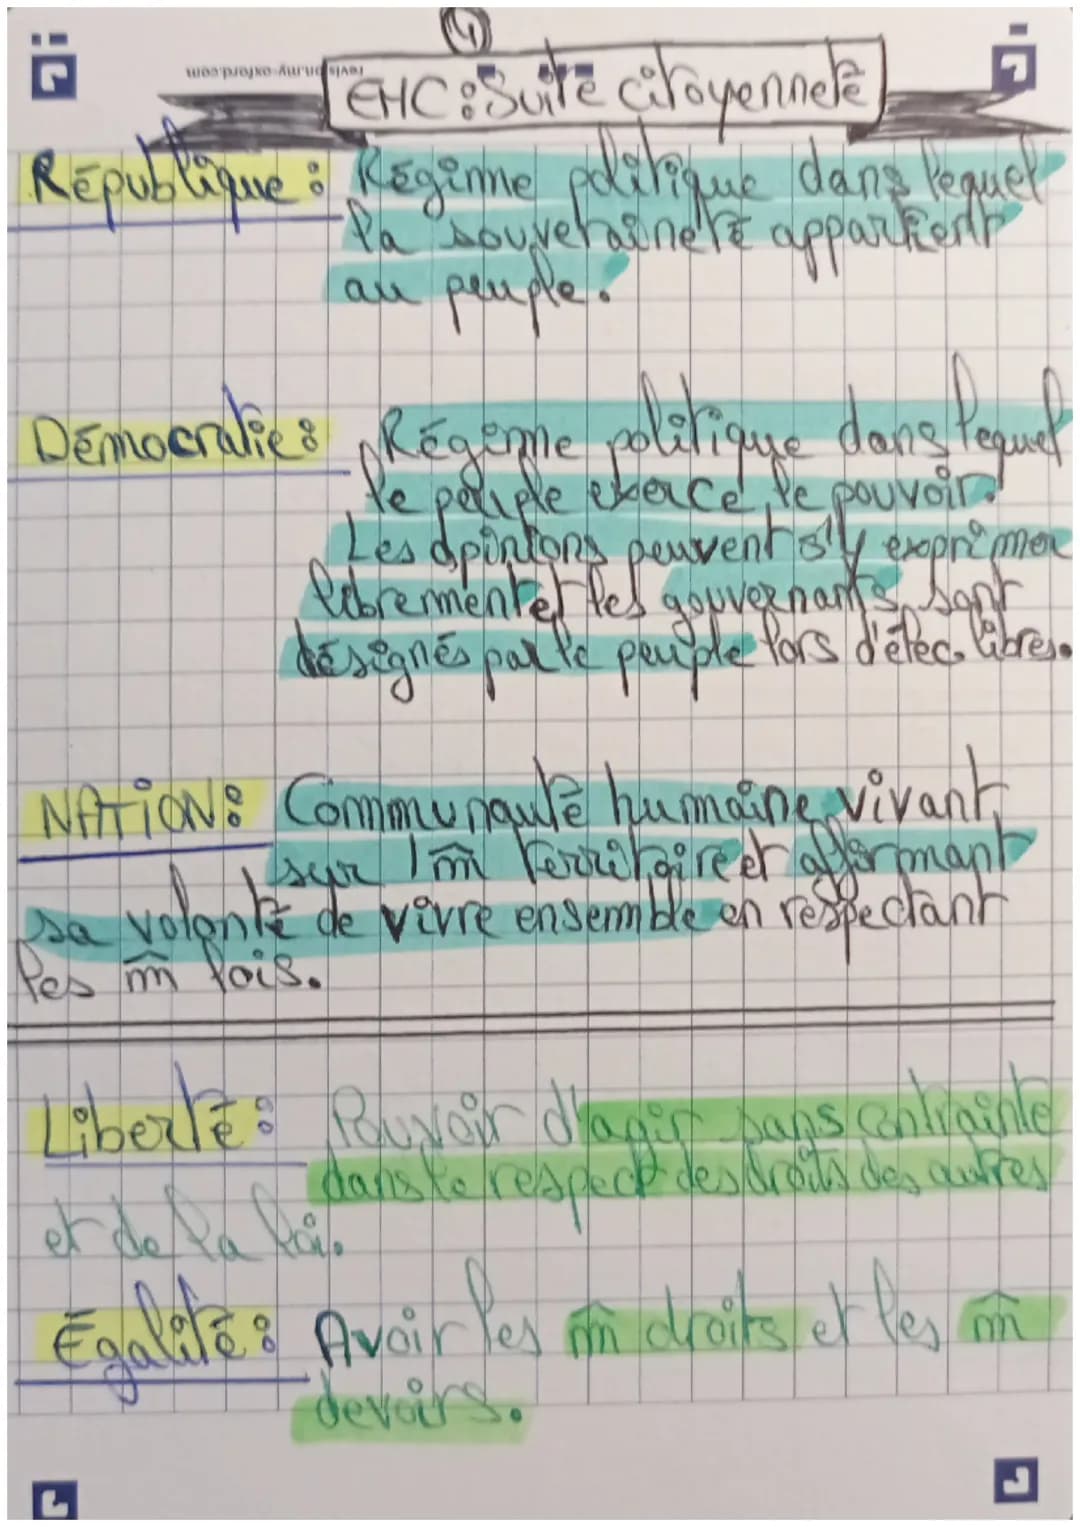 4
revision.my-oxford.com
EHC : Suite citoyenneté
République : Régime politique dans lequel
la souveraineté appartient
au peuple.
Démocratie : Régime politique dans lequel
le peuple exerce le pouvoir.
Les opinions peuvent s'y exprimer
librement et les gouvernants sont
désignés par le peuple lors d'élec. libres.
NATION : Communauté humaine vivant
sur 1 m̂ territoire et affirmant
sa volonté de vivre ensemble en respectant
les m̂ lois.
Liberté : Pouvoir d'agir sans contrainte
dans le respect des droits des autres
et de la loi.
Égalité : Avoir les m̂ droits et les m̂
devoirs.